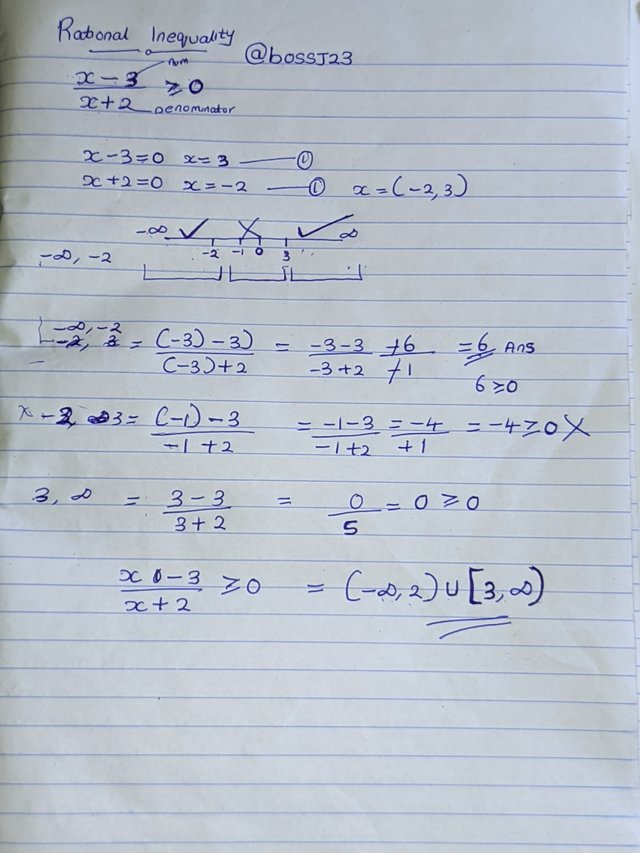 Rational Inequality
@bossJ23
x - 3 num
x + 2 Denominator
≥ 0
x - 3 = 0 x = 3
x + 2 = 0 x = -2 x = (-2, 3)
-∞ ✓ X ✓ ∞
-2 -1 0 3
-∞, -2
-∞, -2
= (-3) - 3) / (-3) + 2 = -3 - 3 / -3 + 2 +6 / +1 = 6 Ans
6 ≥ 0
= (-1) - 3 / -1 + 2 = -1 - 3 / -1 + 2 = -4 / +1 = -4 ≥ 0 X
3, ∞ = 3 - 3 / 3 + 2 = 0 / 5 = 0 ≥ 0
x - 3 / x + 2 ≥ 0 = (-∞, 2) ∪ [3, ∞)